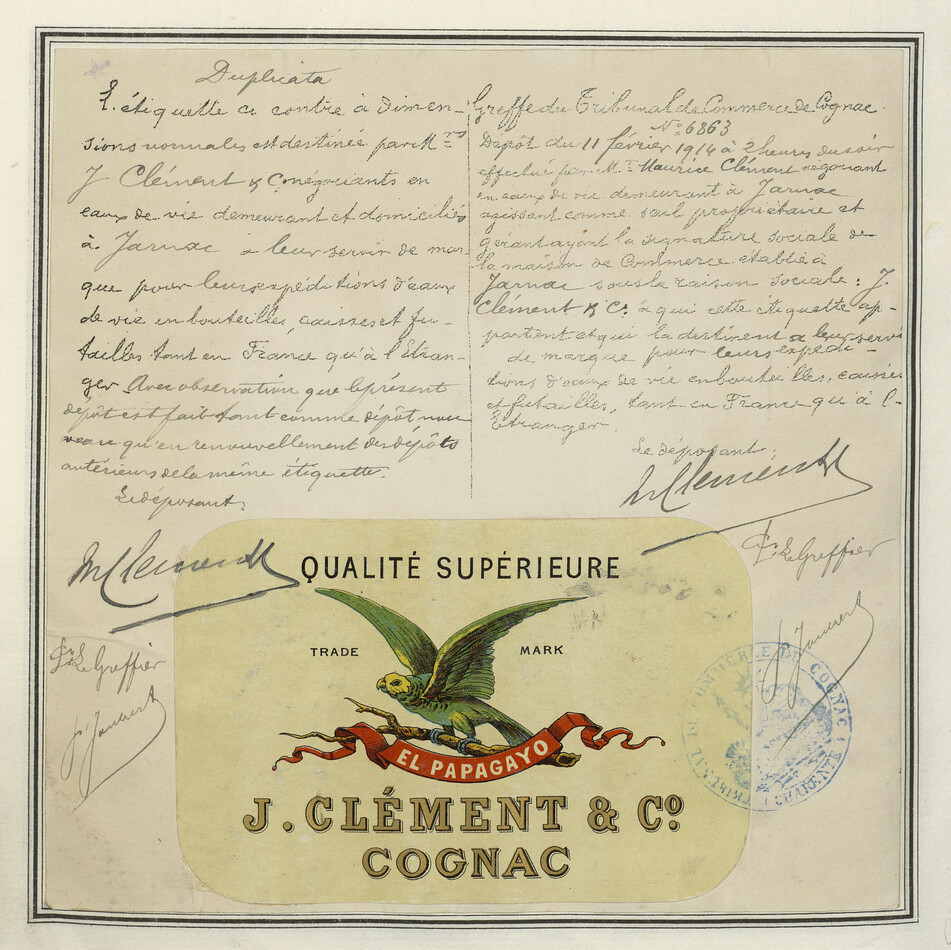 Duplicata
L'étiquette ci contre à dimen-
sions normales est destinée par M.rs
J. Clément & C. négociants en
eaux de vie demeurant et domiciliés
à Jarnac à leur servir de mar-
que pour leurs expéditions d'eaux
de vie en bouteilles, caisses et fu-
tailles tant en France qu'à l'Etran-
ger Avec observation que le présent
dépôt est fait tant comme dépôt nou-
veau qu'en renouvellement des dépôts
antérieurs de la même étiquette.
Le déposant,
M Clement
P. Le Greffier
Greffe du Tribunal de Commerce de Cognac.
No. 6863
Dépôt du 11 février 1914 à 2 heures du soir
effectué par M.r Maurice Clément négociant
en eaux de vie demeurant à Jarnac
agissant comme seul propriétaire et
gérant ayant la signature sociale de
la maison de Commerce établie à
Jarnac sous la raison sociale : J.
Clément & C. à qui cette étiquette ap-
partient et qui la destinent à leur servir
de marque pour leurs expédi-
tions d'eaux de vie en bouteilles, caisses
et futailles, tant en France qu'à l'-
Etranger.
Le déposant.
M Clement
P. Le Greffier
QUALITÉ SUPÉRIEURE
TRADE MARK
EL PAPAGAYO
J. CLÉMENT & Cº
COGNAC
TRIBUNAL DE COMMERCE DE COGNAC
(CHARENTE)